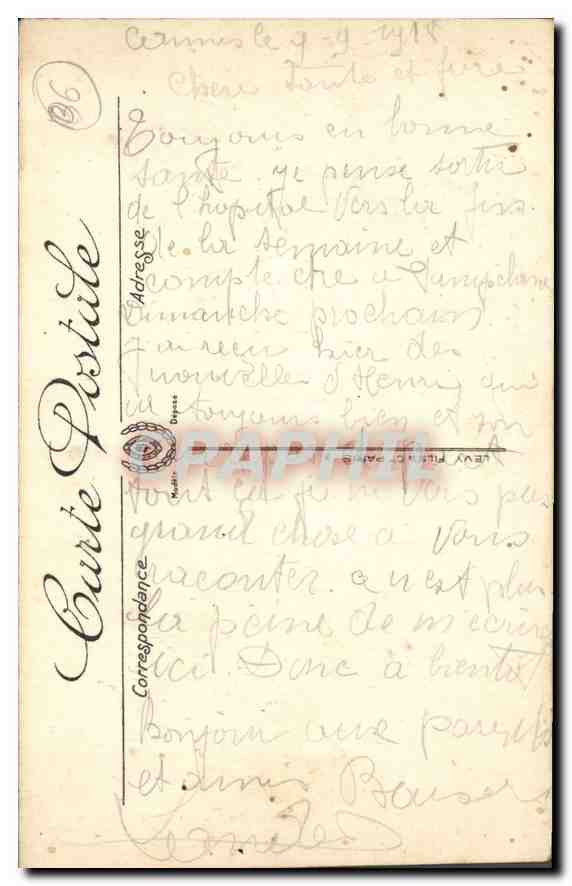 le 9-9-1918
Chere Tante et frère
Toujours en bonne
santé. je pense sortir
de l'hopital vers la fin
de la semaine et
compte être a
Dimanche prochain
J'ai recu hier des
nouvelle d'Henri qui
va toujours bien et
tout ça je ne vois pas
grand chose a vous
raconter. n'est plus
la peine de m'ecrire
ici. Donc à bientôt
bonjour aux
et amis Baisers
136
Carte Postale
Adresse
Correspondance
Modèle Déposé
LEVY FILS ET Cie PARIS
PAPHIL